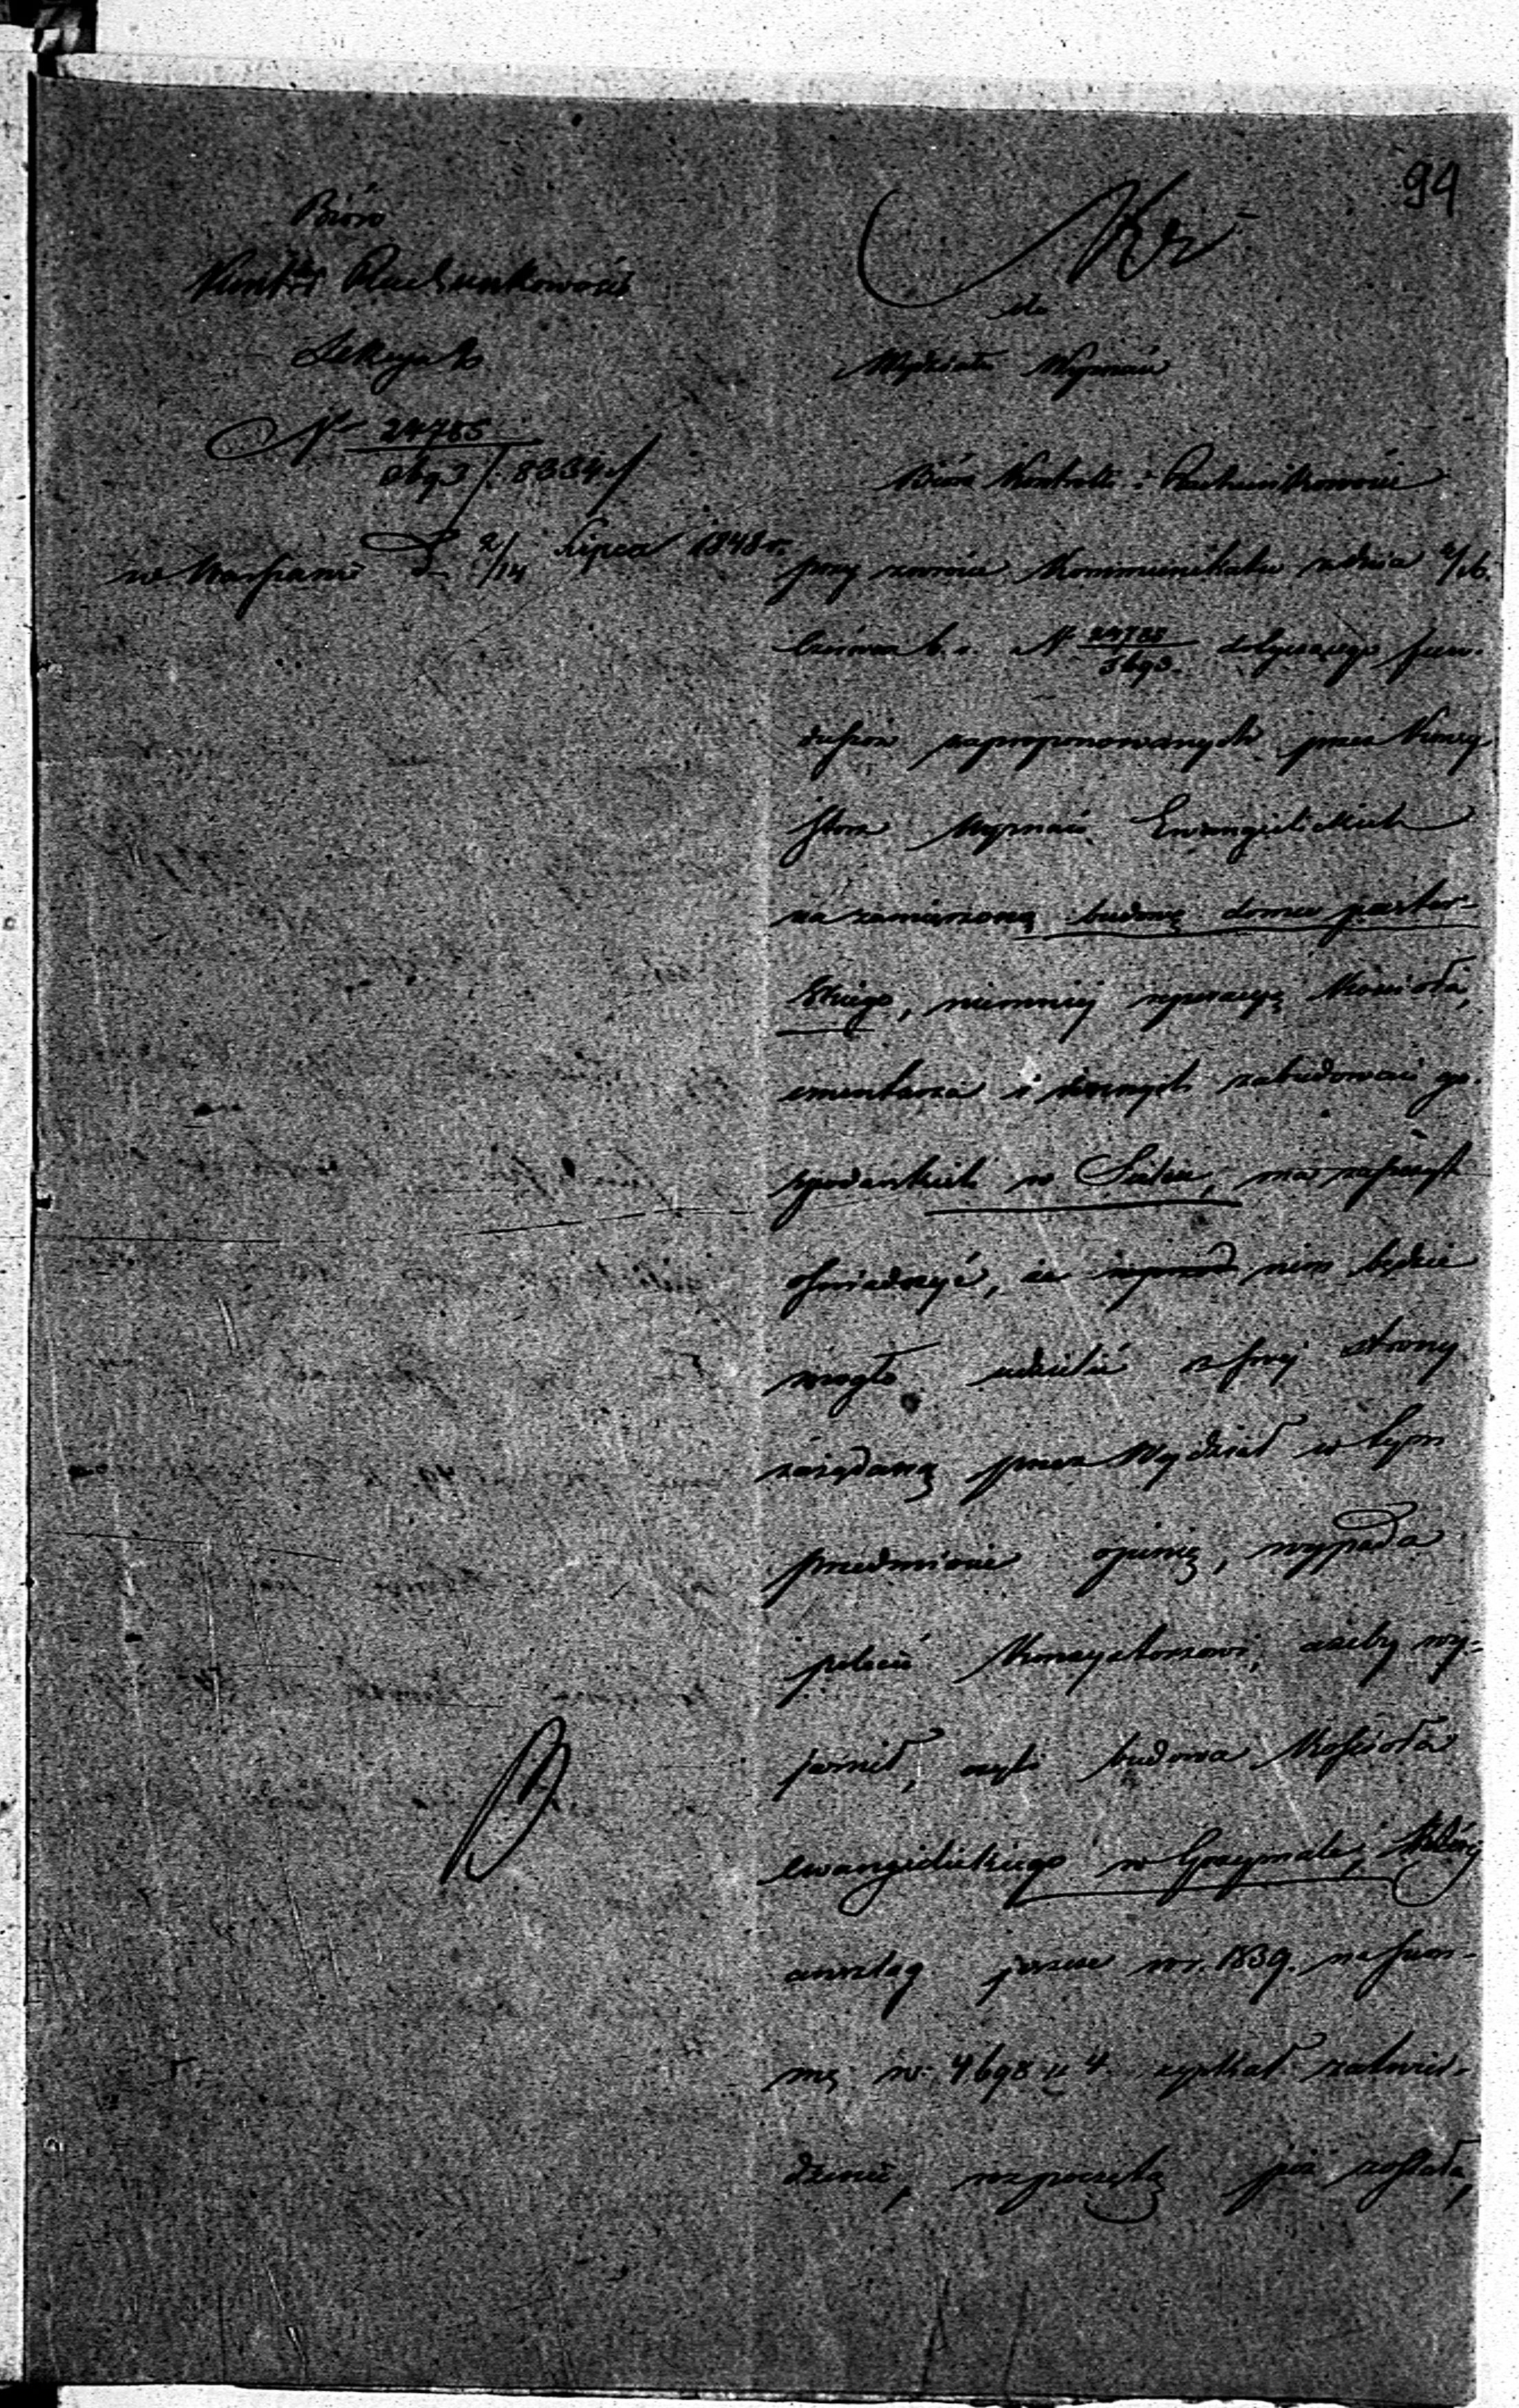 94
Bióro
Kontrli Rachunkowości
Sekcya
N 24785
5693 / 8334
w Warszawie D 2/14 Lipca 1848 r.
do
Wydziału Wyznań
Bióro Kontroli i Rachunkowości
przy zwrocie Kommunikatu z dnia 4/16
Czerwca b. r. N 24785/5693 dotyczącego fun-
duszów zaproponowanych przez Konsy-
storz Wyznań Ewangielickich
na zamierzoną budowę domu pastor-
skiego, niemniej reperacyę Kościoła,
cmentarza i zabudowań go-
spodarskich w, ma zaszczyt
oświadczyć, że nim będzie
mogło udzielić z swej strony
zażądaną przez Wydział w tym
przedmiocie opinię, wypada
polecić Konsystorzowi, ażeby wy-
jaśnił, czyli budowa Kościoła
ewangielickiego w Grzymale, której
anszlag jeszcze w r. 1839. na sum-
mę rs. 4698 k 4 zyskał zatwier-
dzenie, rozpoczęta już została,